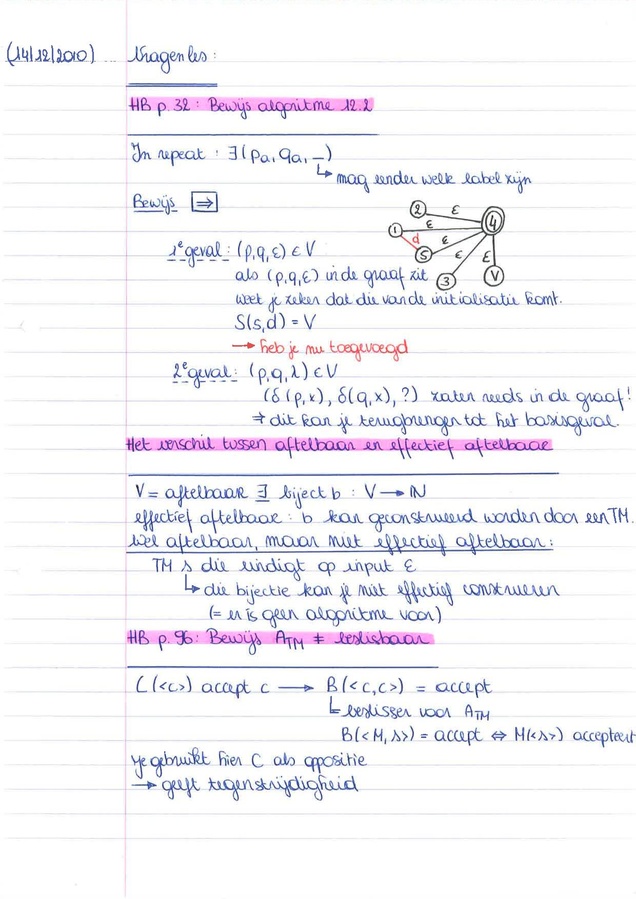 (14/12/2010) Vragenles:
HB p.32: Bewijs algoritme 12.2
In repeat: ∃(pa, qa, _)
↳ mag eender welk label zijn
Bewijs ⇒
2 ε 4
1 ε
d 5 ε
3 ε
V ε
1e geval: (p,q,ε) ∈ V
als (p,q,ε) in de graaf zit
weet je zeker dat die van de initialisatie komt.
S(s,d) = V
→ heb je nu toegevoegd
2e geval: (p,q,λ) ∈ V
(δ(p,x), δ(q,x), ?) zaten reeds in de graaf!
⇒ dit kan je terugbrengen tot het basisgeval.
Het verschil tussen aftelbaar en effectief aftelbaar
V = aftelbaar ∃ biject b: V → ℕ
effectief aftelbaar: b kan geconstrueerd worden door een TM.
wel aftelbaar, maar niet effectief aftelbaar:
TM s die eindigt op input ε
↳ die bijectie kan je niet effectief construeren
(= er is geen algoritme voor)
HB p.96: Bewijs A_TM ≠ beslisbaar
C(<c>) accept c → B(<c,c>) = accept
↳ beslisser voor A_TM
B(<M,s>) = accept ⇔ M(<s>) accepteert
je gebruikt hier C als oppositie
→ geeft tegenstrijdigheid